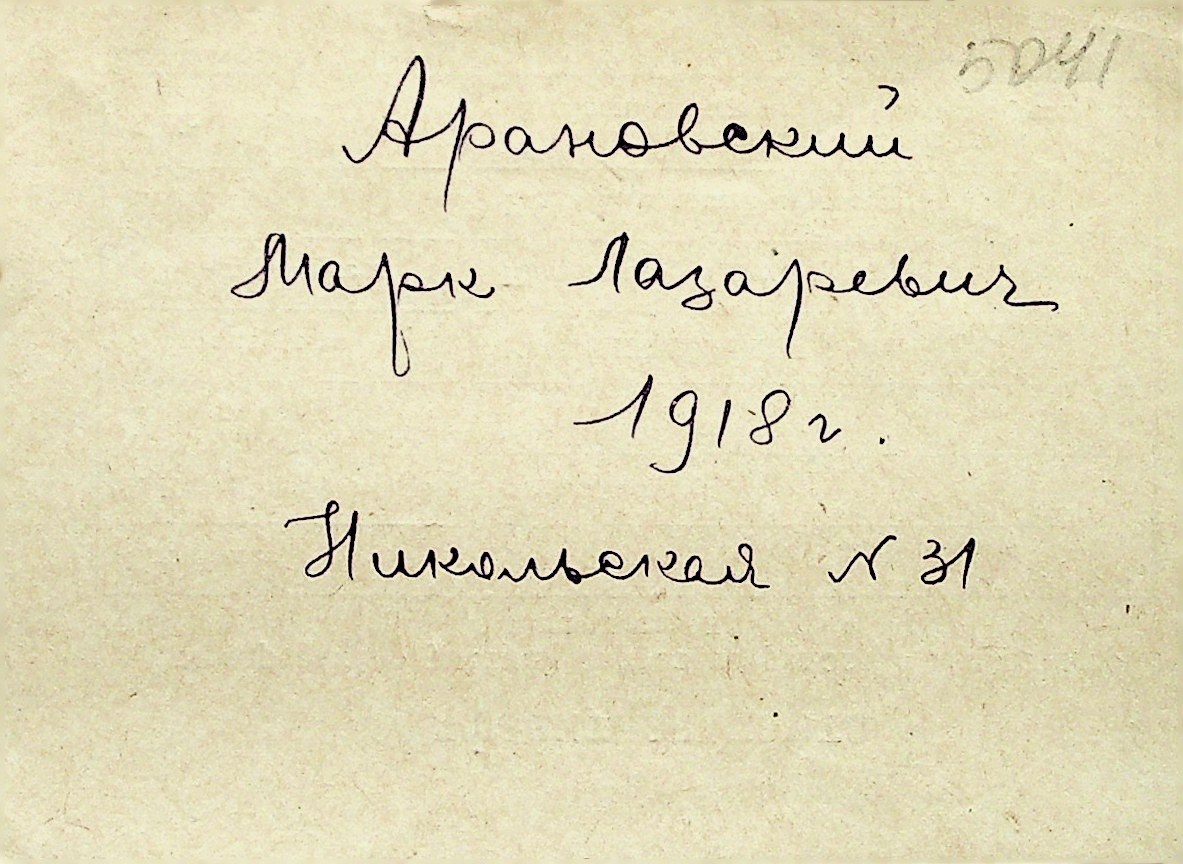 5041
Арановский
Марк Лазаревич
1918 г.
Никольская N 31